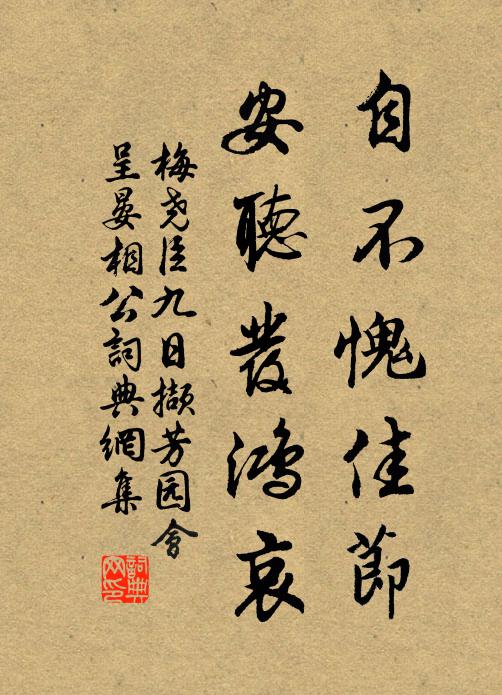 自不愧佳節
安聽發鴻哀
梅尧臣九日撷芳园會
呈晏相公詞典網集
詞典网印